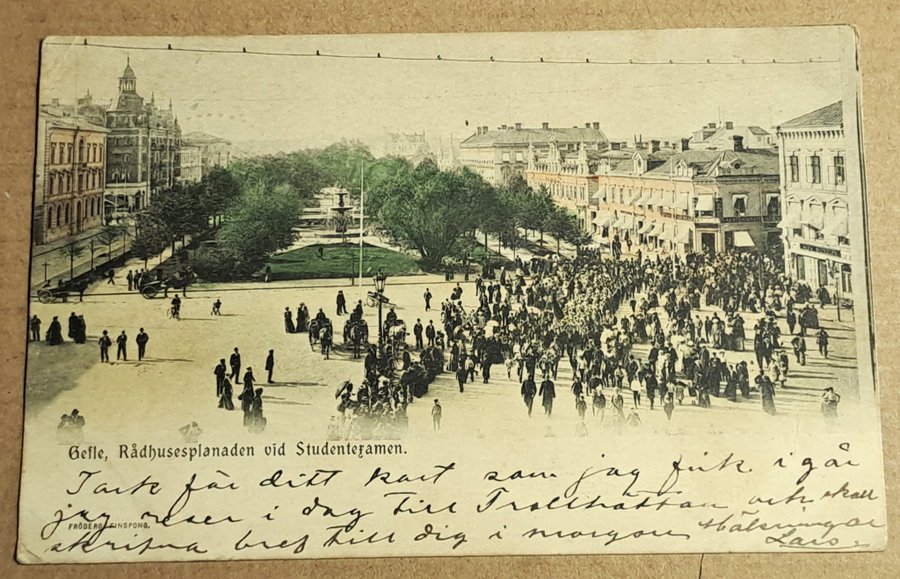 Gefle, Rådhusesplanaden vid Studentexamen.
Tack för ditt kort som jag fick i går
jag reser i dag till Trollhättan och skall
FRÖBERG, FINSPONG.
skrifva bref till dig i morgon Hälsningar
Lars